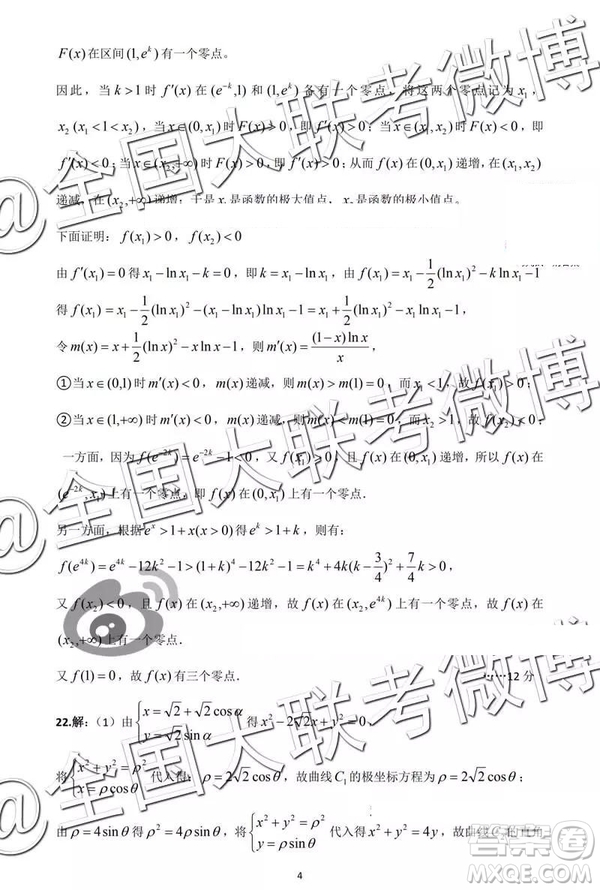 F(x)在区间(1,e^k)有一个零点。
因此，当k>1时f′(x)在(e^{-k},1)和(1,e^k)各有一个零点，将这两个零点记为x₁，
x₂(x₁<1<x₂)，当x∈(0,x₁)时F(x)>0，即f′(x)>0；当x∈(x₁,x₂)时F(x)<0，即
f′(x)<0；当x∈(x₂,+∞)时F(x)>0，即f′(x)>0；从而f(x)在(0,x₁)递增，在(x₁,x₂)
递减，在(x₂,+∞)递增；于是x₁是函数的极大值点，x₂是函数的极小值点。
下面证明：f(x₁)>0，f(x₂)<0
由f′(x₁)=0得x₁-ln x₁-k=0，即k=x₁-ln x₁，由f(x₁)=x₁-\frac{1}{2}(ln x₁)²-k ln x₁-1
得f(x₁)=x₁-\frac{1}{2}(ln x₁)²-(x₁-ln x₁)ln x₁-1=x₁+\frac{1}{2}(ln x₁)²-x₁ln x₁-1，
令m(x)=x+\frac{1}{2}(ln x)²-x ln x-1，则m′(x)=\frac{(1-x)ln x}{x}，
①当x∈(0,1)时m′(x)<0，m(x)递减，则m(x)>m(1)=0，而x₁<1，故f(x₁)>0；
②当x∈(1,+∞)时m′(x)<0，m(x)递减，则m(x)<m(1)=0，而x₂>1，故f(x₂)<0；
一方面，因为f(e^{-2k})=e^{-2k}-1<0，又f(x₁)>0，且f(x)在(0,x₁)递增，所以f(x)在
(e^{-2k},x₁)上有一个零点，即f(x)在(0,x₁)上有一个零点．
另一方面，根据e^x>1+x(x>0)得e^k>1+k，则有：
f(e^{4k})=e^{4k}-12k²-1>(1+k)⁴-12k²-1=k⁴+4k(k-\frac{3}{4})²+\frac{7}{4}k>0，
又f(x₂)<0，且f(x)在(x₂,+∞)递增，故f(x)在(x₂,e^{4k})上有一个零点，故f(x)在
(x₂,+∞)上有一个零点．
又f(1)=0，故f(x)有三个零点．
……12分
22.解：（1）由{x=√2+√2cosα y=√2sinα 得x²-2√2x+y²=0，
将{x²+y²=ρ² x=ρcosθ 代入得：ρ=2√2cosθ，故曲线C₁的极坐标方程为ρ=2√2cosθ；
由ρ=4sinθ得ρ²=4ρsinθ，将{x²+y²=ρ² y=ρsinθ 代入得x²+y²=4y，故曲线C₂的直角
4
@全国大联考微博
@全国大联考微博
@全国大联考微博
答案圈
MXQE.COM